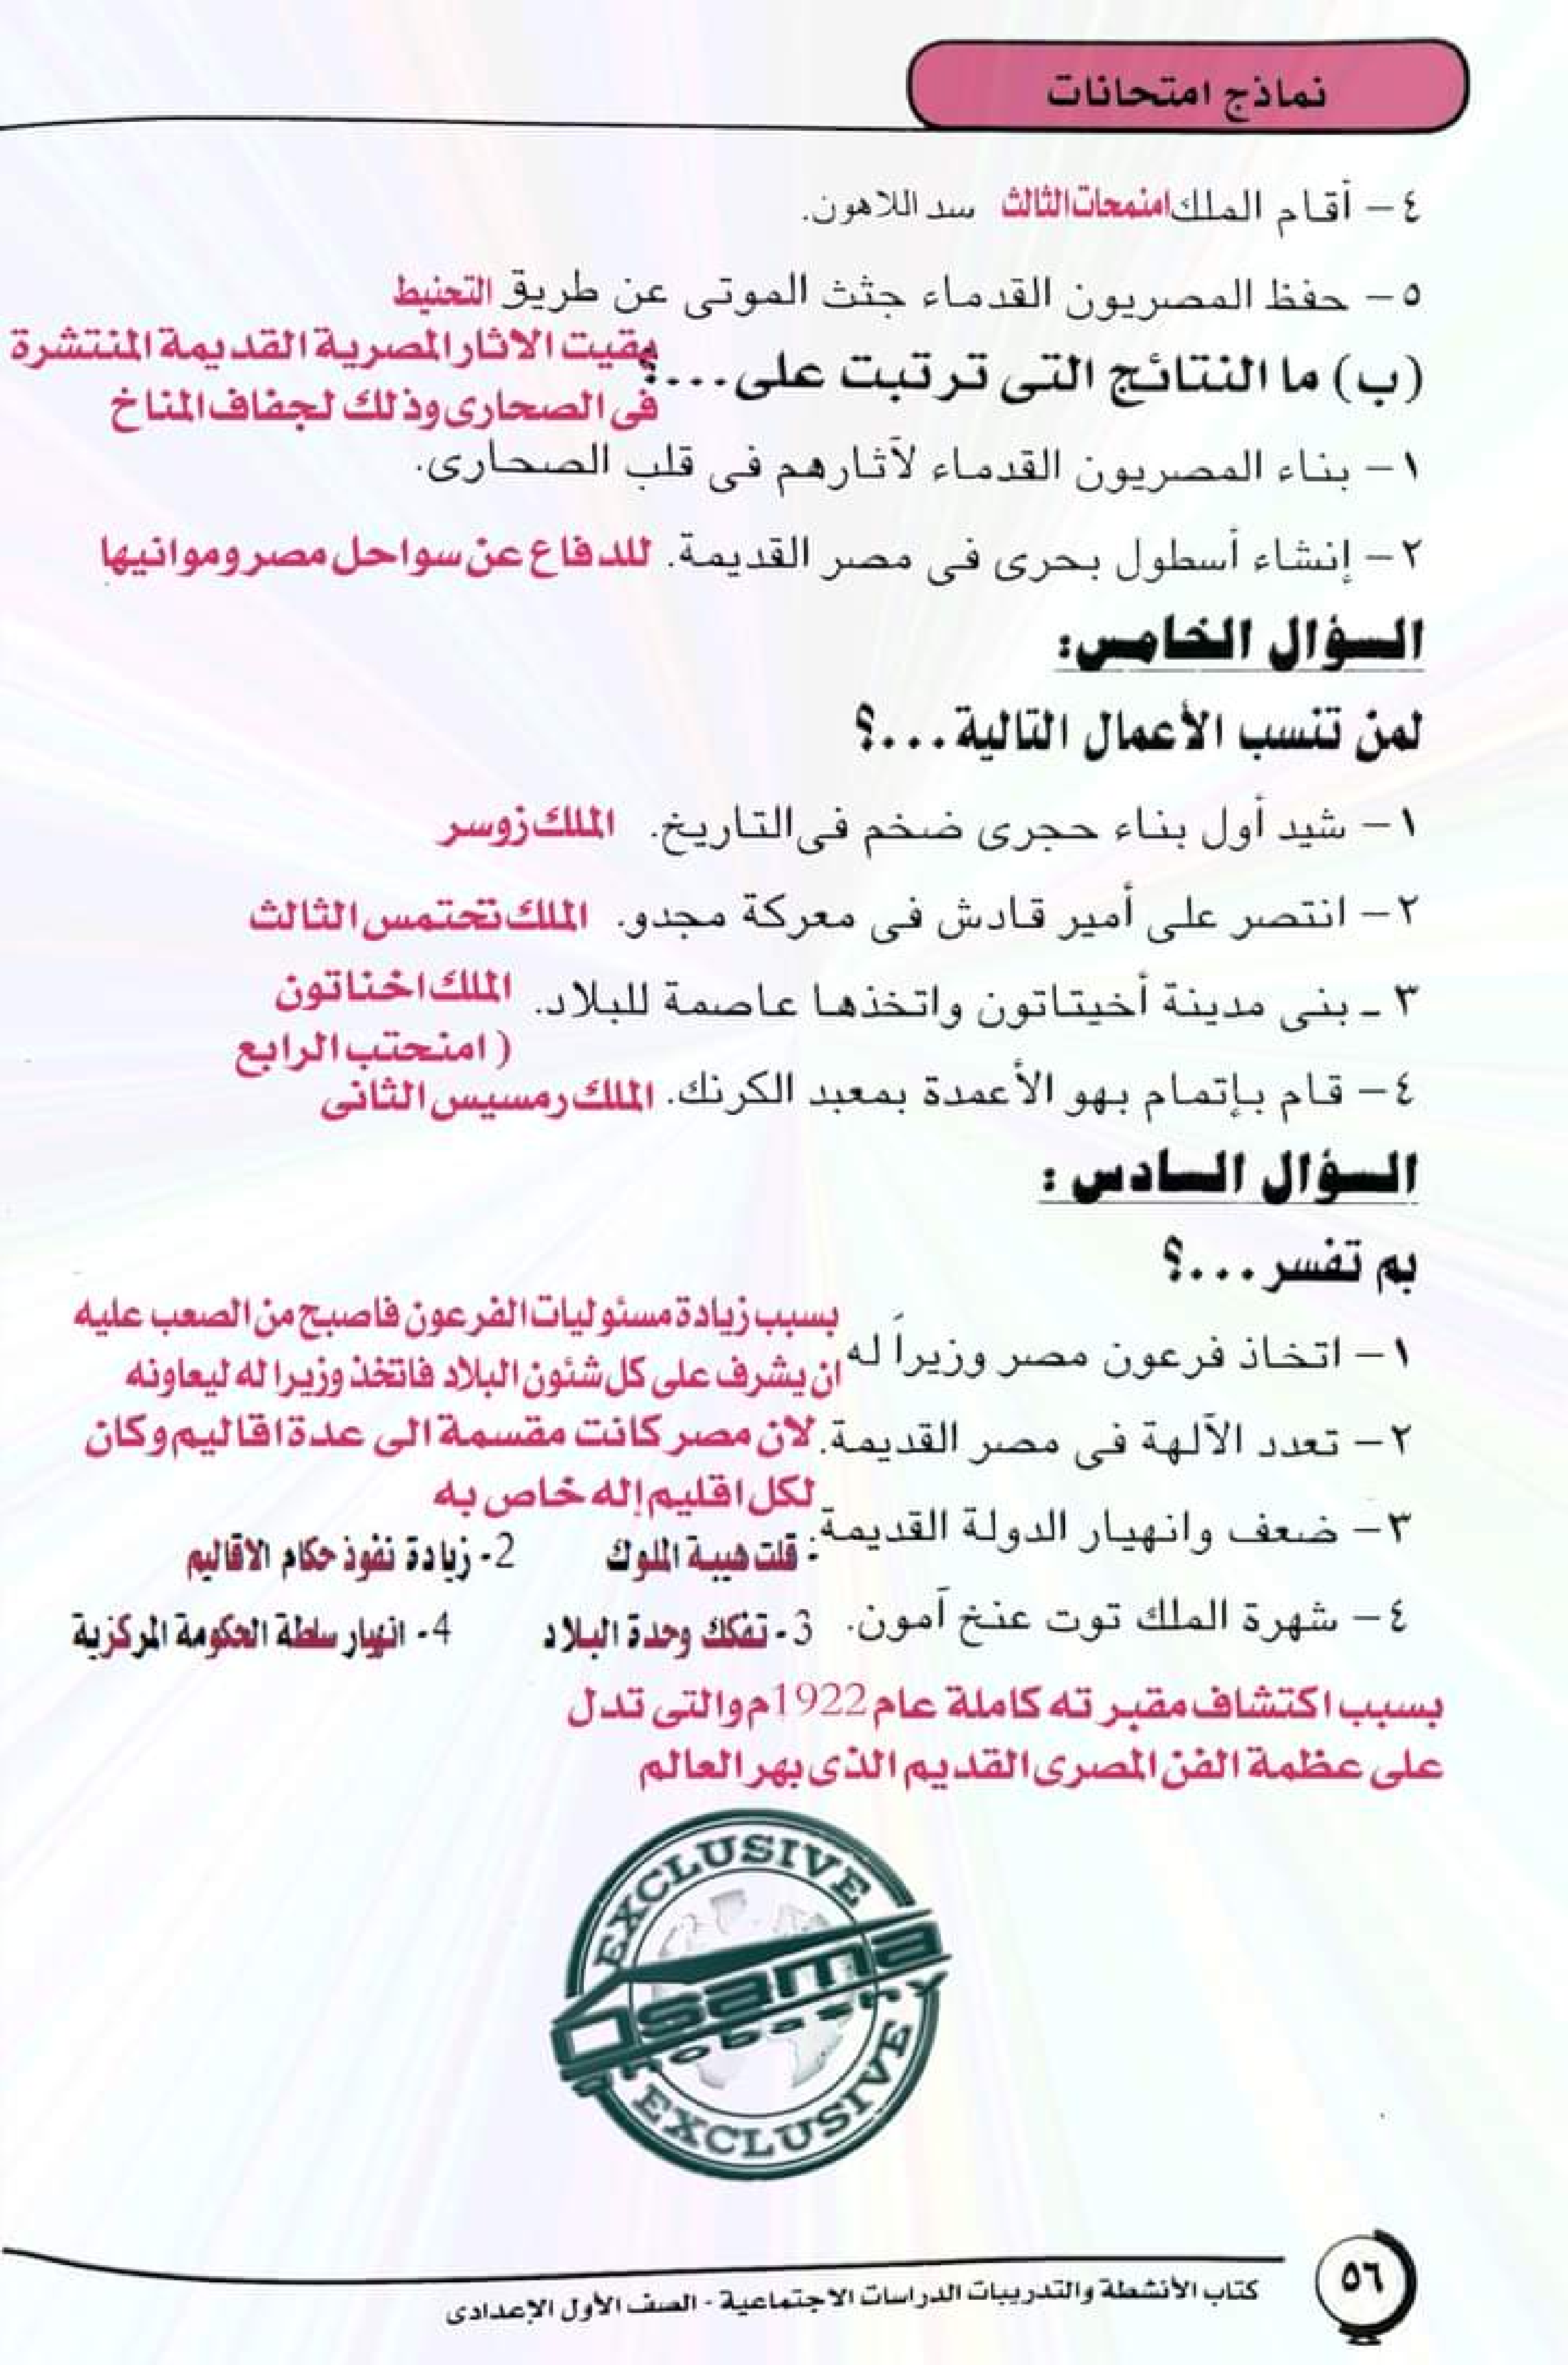 نماذج امتحانات
٤ – أقام الملك امنمحات الثالث سد اللاهون.
٥ – حفظ المصريون القدماء جثث الموتى عن طريق التحنيط
(ب) ما النتائج التى ترتبت على...؟
بقيت الاثار المصرية القديمة المنتشرة
فى الصحارى وذلك لجفاف المناخ
١ – بناء المصريون القدماء لآثارهم فى قلب الصحارى.
٢ – إنشاء أسطول بحرى فى مصر القديمة. للدفاع عن سواحل مصر وموانيها
السؤال الخامس:
لمن تنسب الأعمال التالية...؟
١ – شيد أول بناء حجرى ضخم فى التاريخ. الملك زوسر
٢ – انتصر على أمير قادش فى معركة مجدو. الملك تحتمس الثالث
٣ – بنى مدينة أخيتاتون واتخذها عاصمة للبلاد. الملك اخناتون
( امنحتب الرابع
٤ – قام بإتمام بهو الأعمدة بمعبد الكرنك. الملك رمسيس الثانى
السؤال السادس :
بم تفسر...؟
١ – اتخاذ فرعون مصر وزيراً له بسبب زيادة مسئوليات الفرعون فاصبح من الصعب عليه
ان يشرف على كل شئون البلاد فاتخذ وزيرا له ليعاونه
٢ – تعدد الآلهة فى مصر القديمة. لان مصر كانت مقسمة الى عدة اقاليم وكان
لكل اقليم إله خاص به
٣ – ضعف وانهيار الدولة القديمة. : قلت هيبة الملوك 2- زيادة نفوذ حكام الاقاليم
3- تفكك وحدة البلاد 4- انهيار سلطة الحكومة المركزية
٤ – شهرة الملك توت عنخ آمون.
بسبب اكتشاف مقبر ته كاملة عام 1922م والتى تدل
على عظمة الفن المصرى القديم الذى بهر العالم
EXCLUSIVE
Osama
EXCLUSIVE
كتاب الأنشطة والتدريبات الدراسات الاجتماعية - الصف الأول الإعدادى
٥٦